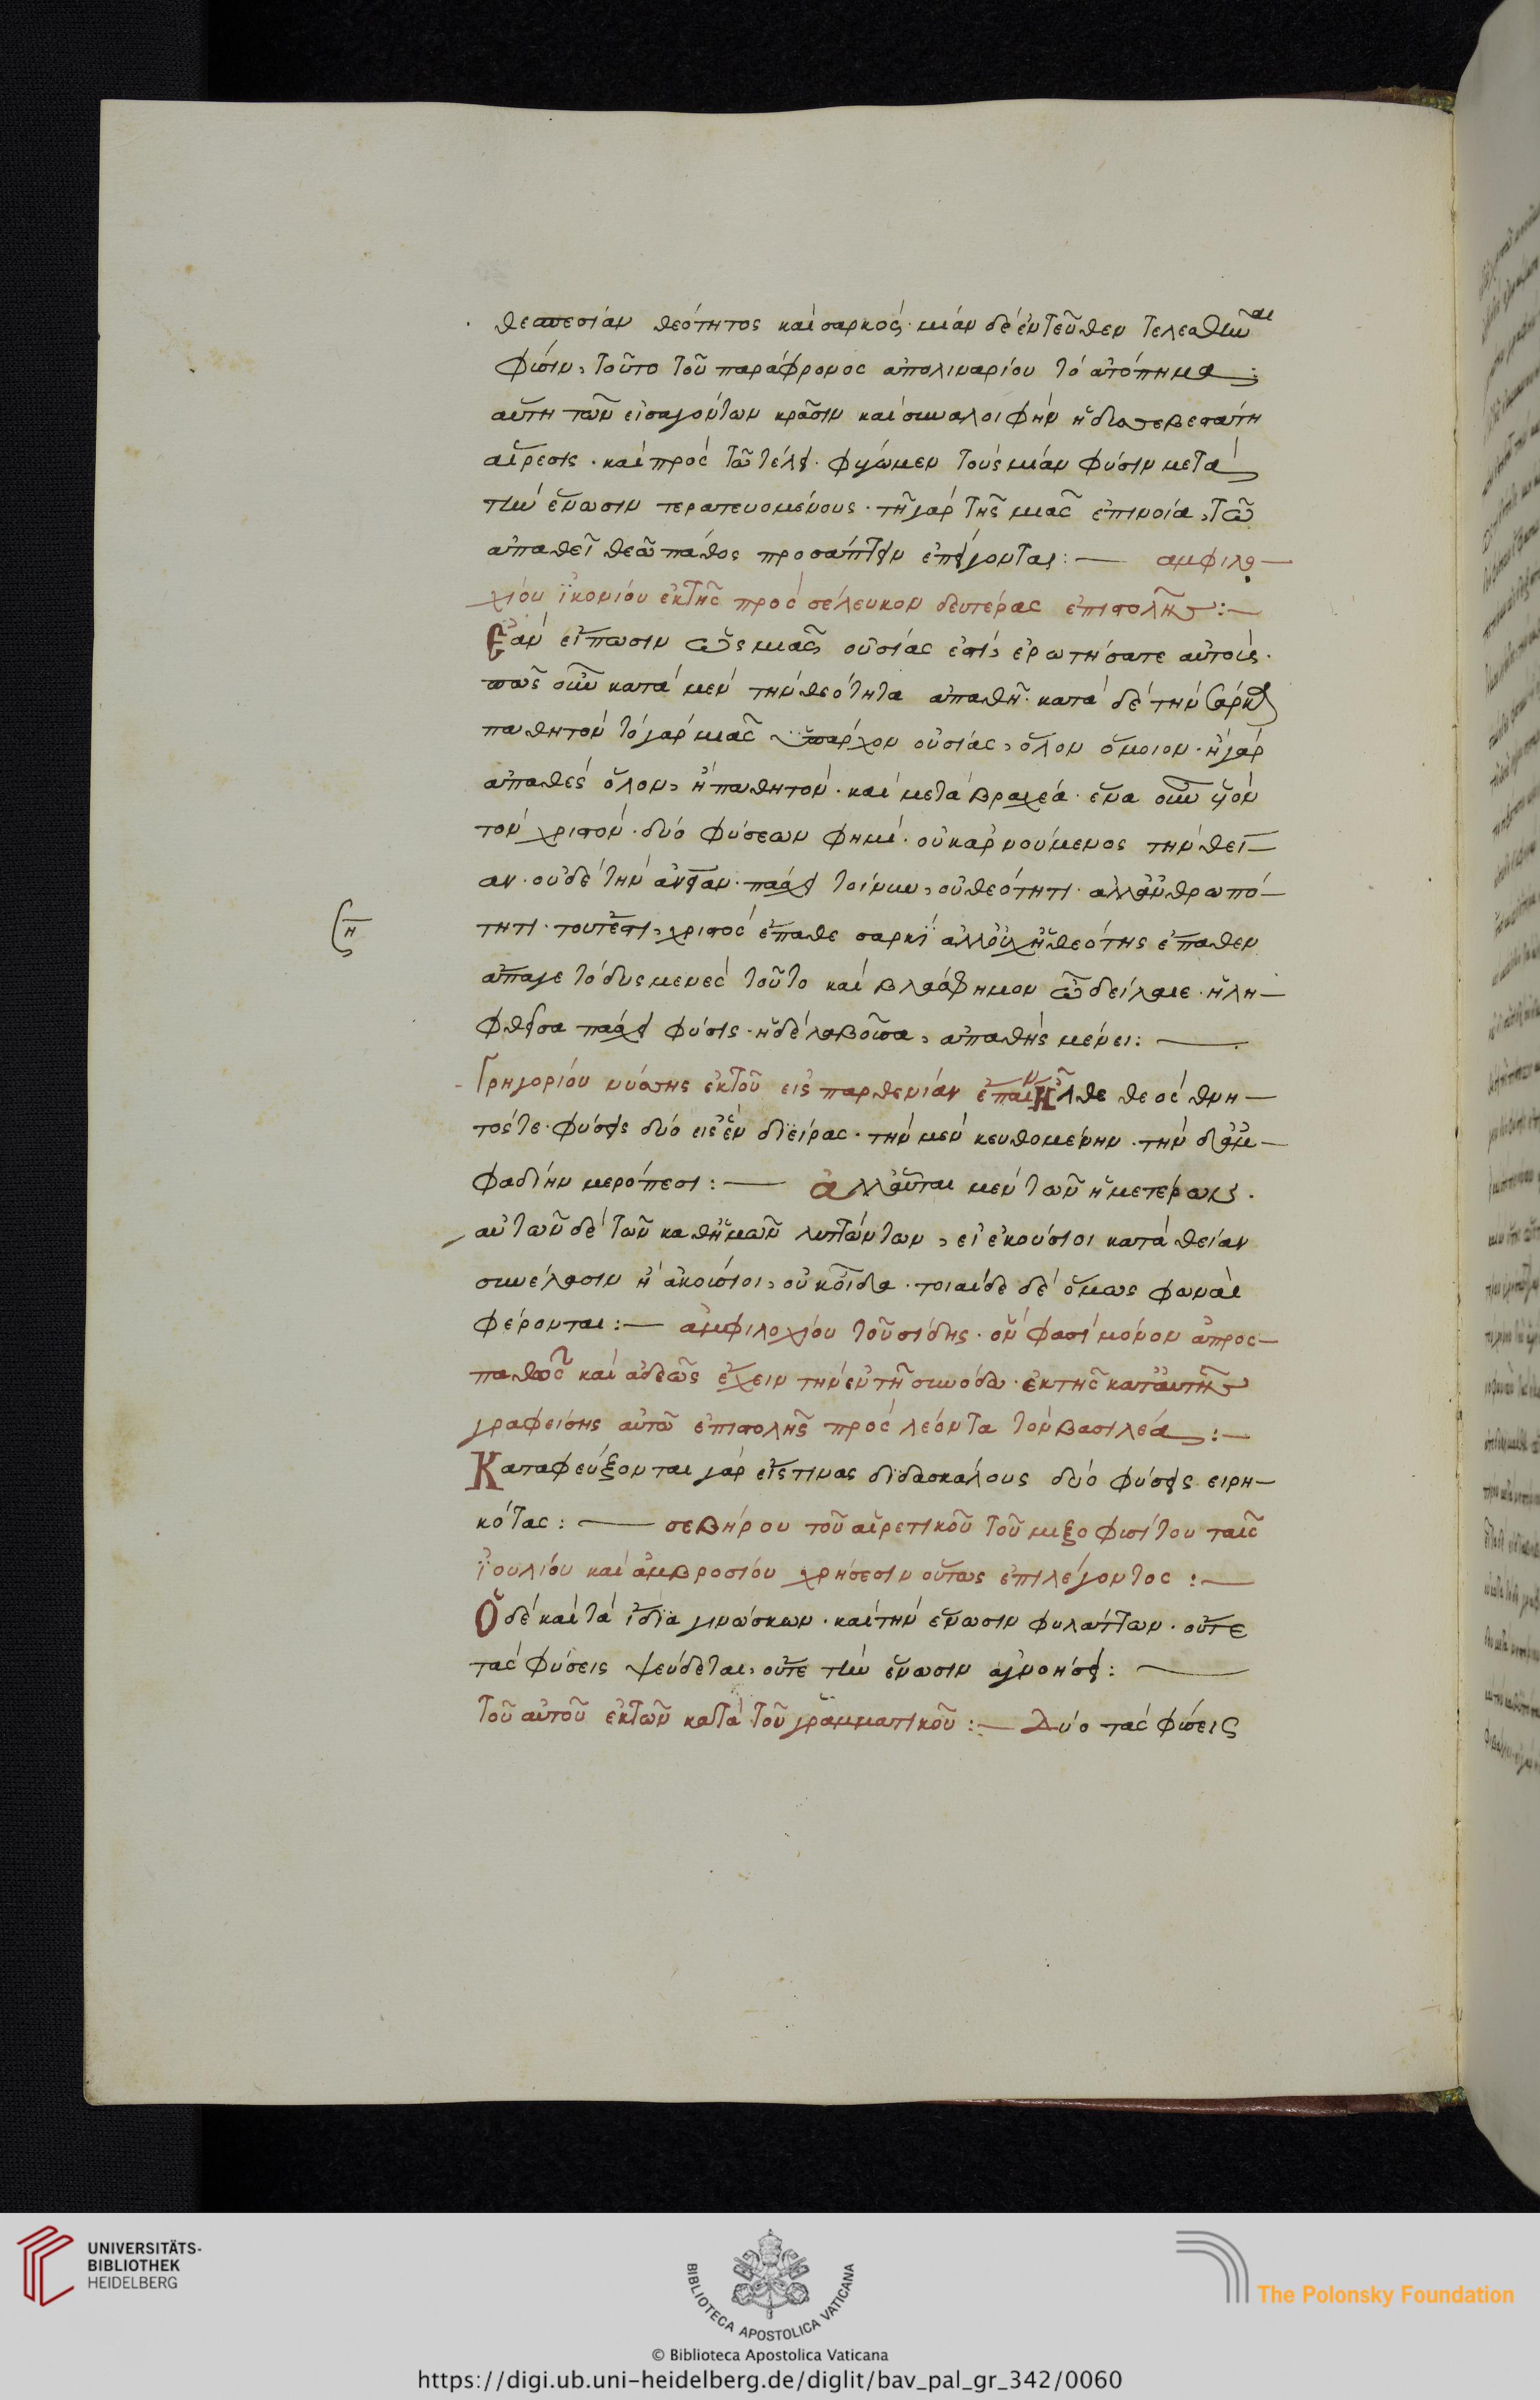 θεσπεσίαν θεότητος καὶ σαρκός· μίαν δὲ ἐντεῦθεν τελεσθῆναι
φύσιν, τοῦτο τοῦ παράφρονος ἀπολιναρίου τὸ ἀτόπημα:
αὕτη τῶν εἰσαγόντων κρᾶσιν καὶ συναλοιφὴν ἡ δυσσεβεστάτη
αἵρεσις· καὶ πρὸς τῶ τέλει· φύγωμεν τοὺς μίαν φύσιν μετὰ
τὴν ἕνωσιν τερατευομένους· τῆ γὰρ τῆς μιᾶς ἐπινοία, τῶ
ἀπαθεῖ θεῶ πάθος προσάπτειν ἐπείγονται:— ἀμφιλο—
χίου ἰκονίου ἐκ τῆς πρὸς σέλευκον δευτέρας ἐπιστολῆς:—
Ἐὰν εἴπωσιν ὡς μιᾶς οὐσίας ἐστὶ, ἐρωτήσατε αὐτοὺς·
πῶς οὖν κατὰ μὲν τὴν θεότητα ἀπαθῆ· κατὰ δὲ τὴν σάρκα
παθητόν τὸ γὰρ μιᾶς ὑπάρχον οὐσίας, ὅλον ὅμοιον· ἢ γὰρ
ἀπαθὲς ὅλον, ἢ παθητόν· καὶ μετὰ βραχέα· ἕνα οὖν υἱὸν
τὸν χριστὸν· δύο φύσεων φημὶ· οὐκ ἀρνούμενος τὴν θεί—
αν· οὐδὲ τὴν ἀνίαν· πάσχει τοίνυν, οὐ θεότητι· ἀλλ' ἀνθρωπό—
τητι· τουτέστι, χριστὸς ἔπαθε σαρκὶ ἀλλ' οὐχ ἡ θεότης ἔπαθεν
ἄπαγε τὸ δυσμενὲς τοῦτο καὶ βλάσφημον ὦ δείλαιε· ἡ λη—
φθεῖσα πάσχει φύσις· ἡ δὲ λαβοῦσα, ἀπαθὴς μένει:—
Γρηγορίου νύσσης ἐκ τοῦ εἰς παρθενίαν ἐπαίν Ἦλθε θεὸς θνη—
τός τε· φύσεις δύο εἰς ἓν ἀγείρας· τὴν μὲν κευθομένην· τὴν δ' ἀμ—
φαδίην μερόπεσι:— ἀλλ' αὗται μὲν τῶν ἡμετέρων.
αὐτῶν δὲ τῶν καθ' ἡμῶν λυττώντων, εἰ ἑκούσιοι κατὰ θείαν
συνέλασιν ἢ ἀκούσιοι, οὐκ οἶδα· τοιαίδε δὲ ὅμως φωναὶ
φέρονται:— ἀμφιλοχίου τοῦ σίδης· ὅν φασι μόνον ἀπροσ—
παθῶς καὶ ἀδεῶς ἔχειν τὴν ἐν τῆ συνόδω· ἐκ τῆς κατ' αὐτῆς
γραφείσης αὐτῶ ἐπιστολῆς πρὸς λέοντα τὸν βασιλέα:—
Καταφεύξονται γὰρ εἴς τινας διδασκάλους δύο φύσεις εἰρη—
κότας:— σεβήρου τοῦ αἱρετικοῦ τοῦ μιξοφυσίτου ταῖς
ἰουλίου καὶ ἀμβροσίου χρήσεσιν οὕτως ἐπιλέγοντος:—
Ὁ δὲ καὶ τὰ ἴδια γινώσκων· καὶ τὴν ἕνωσιν φυλάττων· οὔτε
τὰς φύσεις ψεύδεται, οὔτε τὴν ἕνωσιν ἀγνοήσει:—
τοῦ αὐτοῦ ἐκ τῶν κατὰ τοῦ γραμματικοῦ:— Δύο τὰς φύσεις
η
UNIVERSITÄTS-
BIBLIOTHEK
HEIDELBERG
BIBLIOTECA APOSTOLICA VATICANA
The Polonsky Foundation
© Biblioteca Apostolica Vaticana
https://digi.ub.uni-heidelberg.de/diglit/bav_pal_gr_342/0060